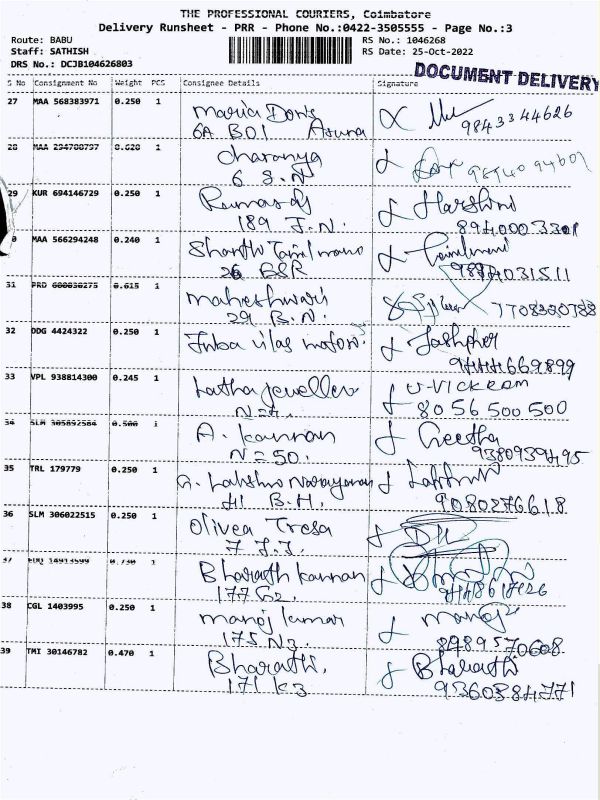 THE PROFESSIONAL COURIERS, Coimbatore
Delivery Runsheet - PRR - Phone No.:0422-3505555 - Page No.:3
Route: BABU
Staff: SATHISH
DRS No.: DCJB104626803
RS No.: 1046268
RS Date: 25-Oct-2022
DOCUMENT DELIVERY
S No Consignment No Weight PCS Consignee Details Signature
27 MAA 568383971 0.250 1 Maria Doris
6A BOI Asuna 9843344626
28 MAA 294708797 0.620 1 Charanya
6 S.N
29 KUR 694146729 0.250 1 Harshini
189 J.N. 8940003301
MAA 566294248 0.240 1
26 BSR
31 PRD 600030275 0.615 1 Maheshwari
29 B.N. 7708380788
32 DDG 4424322 0.250 1 Inba vilas motors.
669899
33 VPL 938814300 0.245 1 Latha jewellers U-VICKRAM
8056500500
34 SLM 305892584 0.500 1 A. Kannan Geetha
N=50. 9380939495
35 TRL 179779 0.250 1 G. Lakshmi Narayanan
41 B.H. 9080276618
36 SLM 306022515 0.250 1 Olivea Tresa
7 J.J.
37 0.730 1 Bharath kannan
177 G2
38 CGL 1403995 0.250 1 manoj kumar manoj
175 N3. 8989570608
39 TMI 30146782 0.470 1 Bharathi. Bharathi
171 K3 9360384771